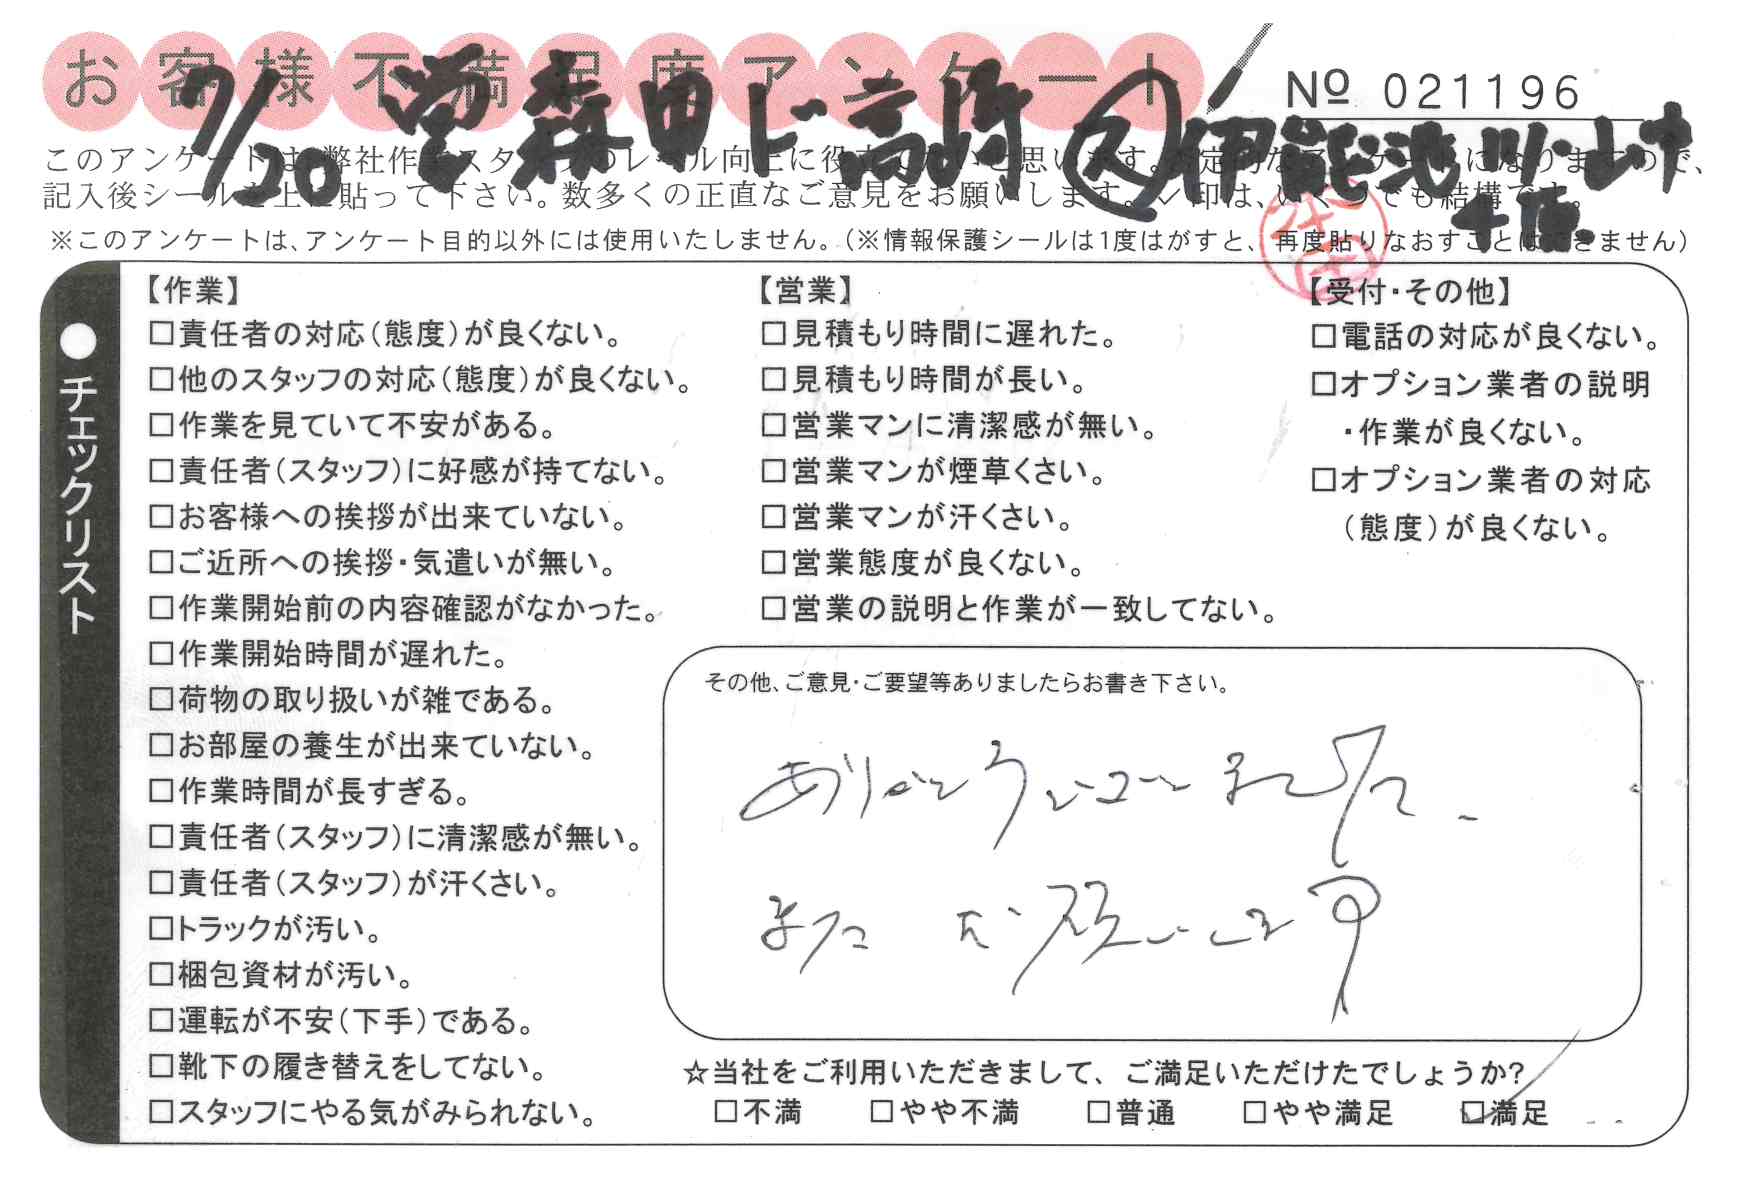 お客様不満足度アンケート
Nº 021196
7/20 営 森田 ド高所 伊能 池 リトル中
このアンケートは、弊社作業スタッフのレベル向上に役立てたいと思います。定期的なアンケートになりますので、
記入後シールを上に貼って下さい。数多くの正直なご意見をお願いします。✓印は、いくつでも結構です。
※このアンケートは、アンケート目的以外には使用いたしません。(※情報保護シールは1度はがすと、再度貼りなおすことはできません)
●チェックリスト
【作業】
□責任者の対応(態度)が良くない。
□他のスタッフの対応(態度)が良くない。
□作業を見ていて不安がある。
□責任者(スタッフ)に好感が持てない。
□お客様への挨拶が出来ていない。
□ご近所への挨拶・気遣いが無い。
□作業開始前の内容確認がなかった。
□作業開始時間が遅れた。
□荷物の取り扱いが雑である。
□お部屋の養生が出来ていない。
□作業時間が長すぎる。
□責任者(スタッフ)に清潔感が無い。
□責任者(スタッフ)が汗くさい。
□トラックが汚い。
□梱包資材が汚い。
□運転が不安(下手)である。
□靴下の履き替えをしてない。
□スタッフにやる気がみられない。
【営業】
□見積もり時間に遅れた。
□見積もり時間が長い。
□営業マンに清潔感が無い。
□営業マンが煙草くさい。
□営業マンが汗くさい。
□営業態度が良くない。
□営業の説明と作業が一致してない。
【受付・その他】
□電話の対応が良くない。
□オプション業者の説明
・作業が良くない。
□オプション業者の対応
(態度)が良くない。
その他、ご意見・ご要望等ありましたらお書き下さい。
ありがとうございました。
また お願いします
☆当社をご利用いただきまして、ご満足いただけたでしょうか?
□不満 □やや不満 □普通 □やや満足 ☑満足